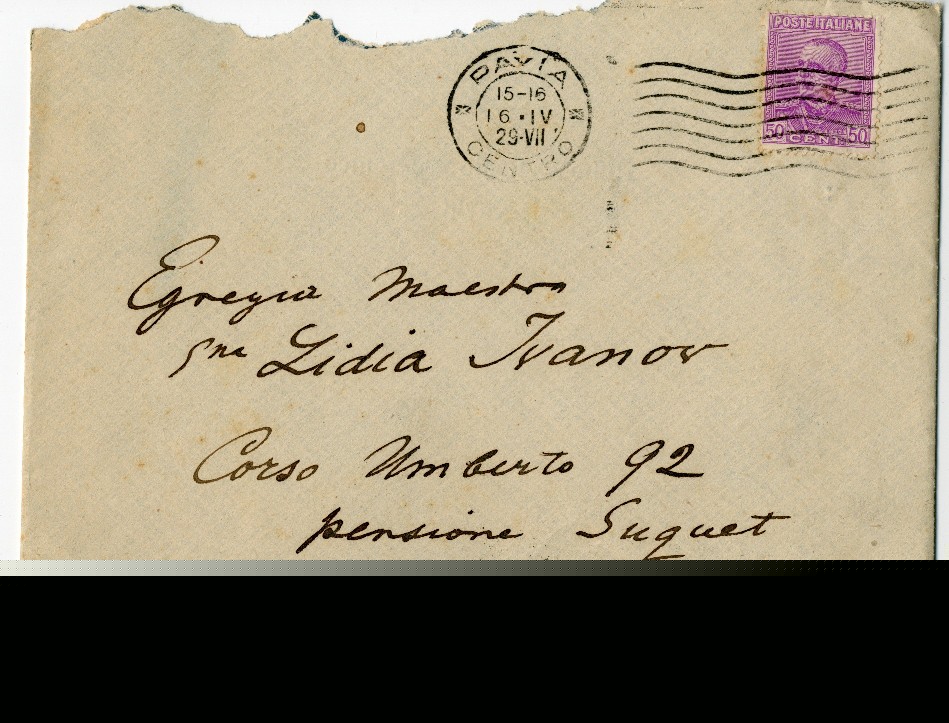 POSTE ITALIANE
50 CENT. 50
PAVIA
15-16
16·IV
29-VII
CENTRO
Egregia Maestra
Sna Lidia Ivanov
Corso Umberto 92
pensione Suquet